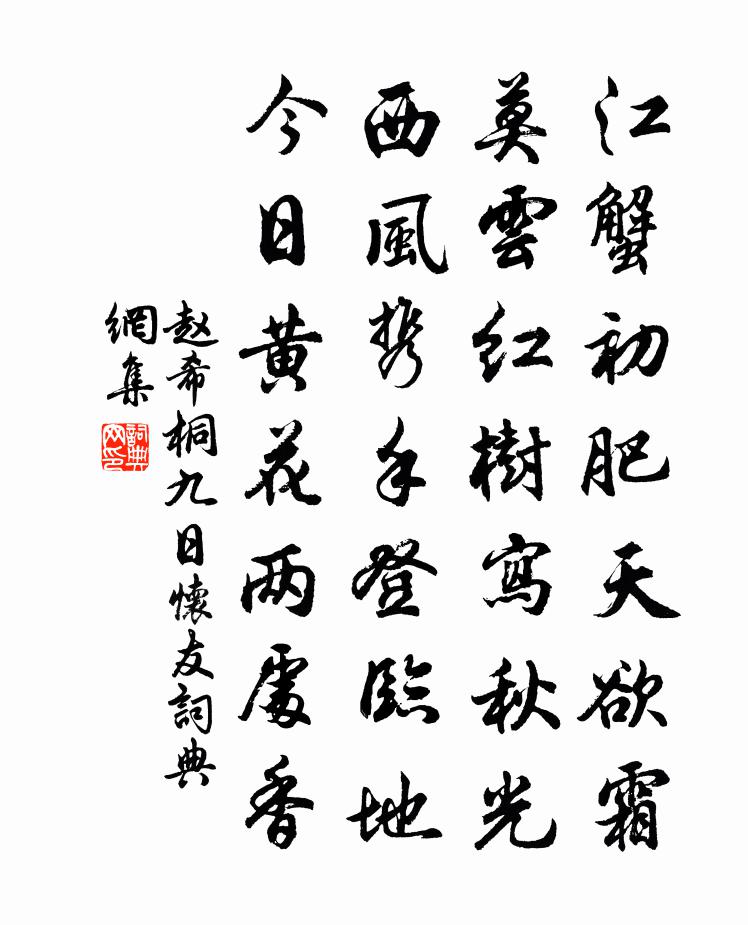 江蟹初肥天欲霜
莫雲紅樹寫秋光
西風携手登臨地
今日黄花两處香
赵希桐九日懷友詞典
網集
詞典
网印